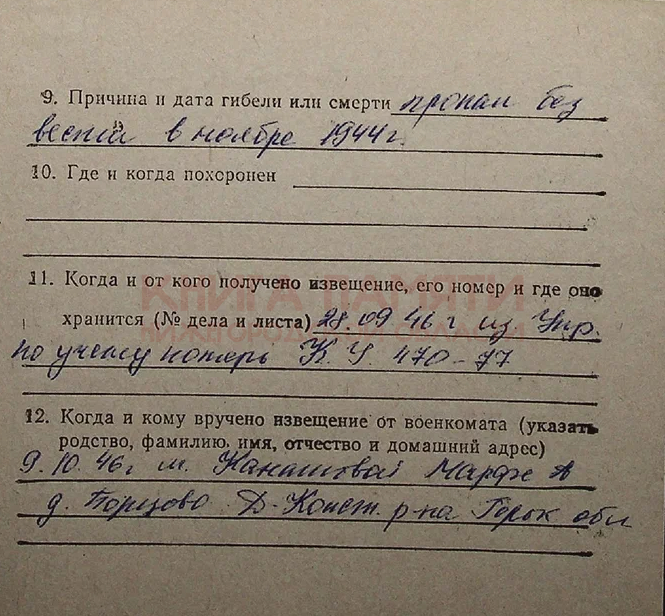 9. Причина и дата гибели или смерти пропал без
вести в ноябре 1944 г.
10. Где и когда похоронен
КНИГА ПАМЯТИ
11. Когда и от кого получено извещение, его номер и где оно
хранится (№ дела и листа) 28.09 46 г из Упр.
по учету потерь К У 470-77
12. Когда и кому вручено извещение от военкомата (указать
родство, фамилию, имя, отчество и домашний адрес)
9.10.46 г м. Канашовой Марфе А
д. Борцово Д-Конст. р-на Горьк обл